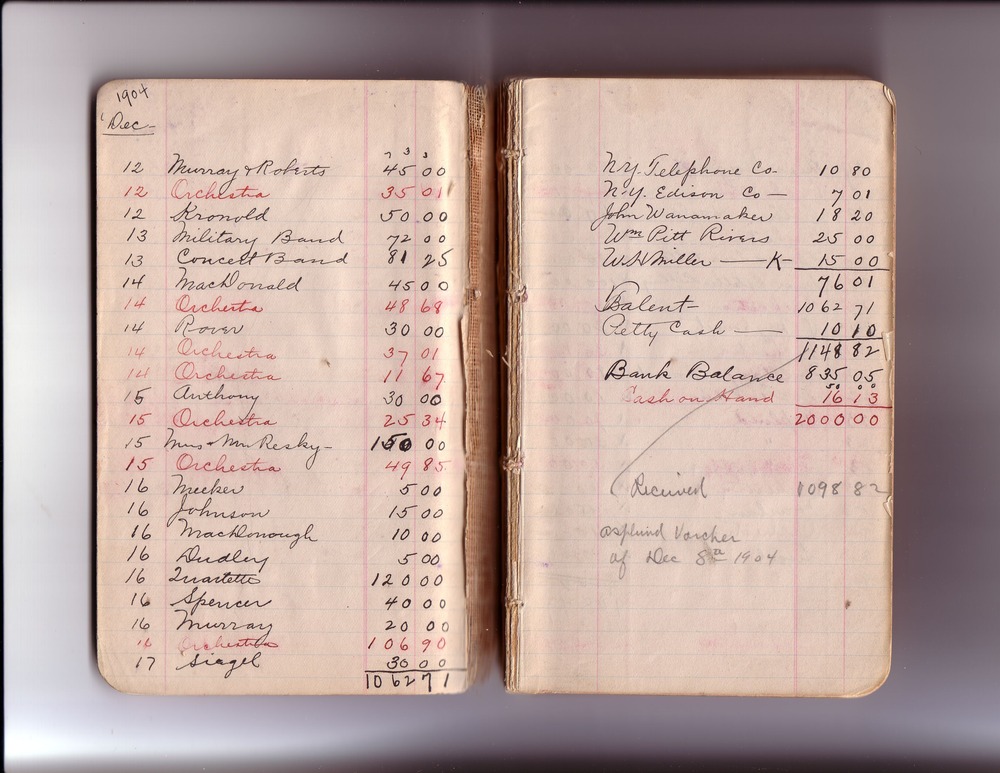 1904
Dec-
7 3 3
12 Murray & Roberts 45 00
12 Orchestra 35 01
12 Kronold 50 00
13 Military Band 72 00
13 Concert Band 81 25
14 MacDonald 45 00
14 Orchestra 48 68
14 Rover 30 00
14 Orchestra 37 01
14 Orchestra 11 67
15 Anthony 30 00
15 Orchestra 25 34
15 Mrs & Mr Resky- 150 00
15 Orchestra 49 85
16 Meeker 5 00
16 Johnson 15 00
16 MacDonough 10 00
16 Dudley 5 00
16 Quartette 120 00
16 Spencer 40 00
16 Murray 20 00
16 Orchestra 106 90
17 Siegel 30 00
1062 71
N.Y. Telephone Co- 10 80
N.Y. Edison Co— 7 01
John Wanamaker 18 20
Wm Pitt Rivers 25 00
W.H. Miller —K- 15 00
76 01
Balent- 1062 71
Petty Cash — 10 10
1148 82
Bank Balance 835 05
Cash on Hand 16 13
2000 00
Received 1098 82
as per Voucher
of Dec 8th 1904